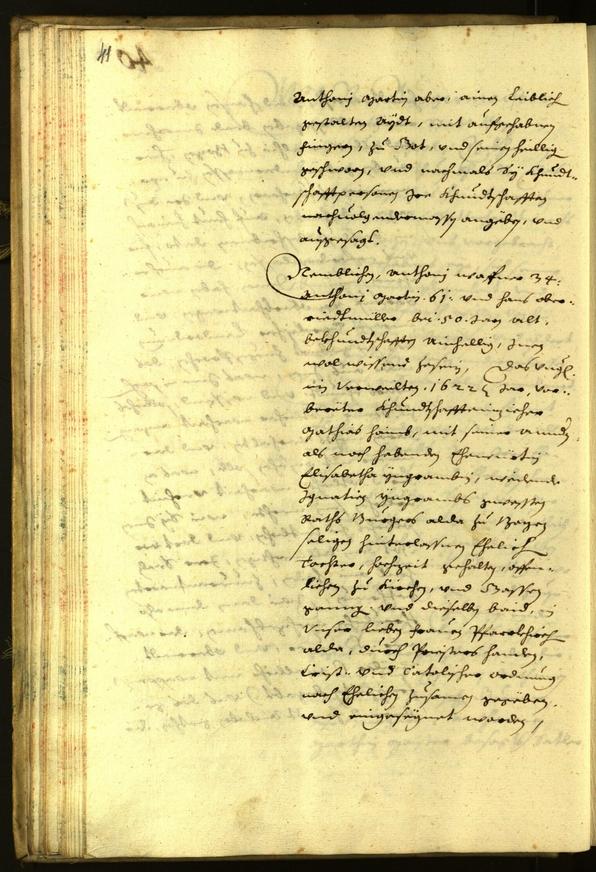 41
Anthonj Martin aber, ainen Leiblich
gestalten Aydt, mit aufgehabnen
fingern, zu Got, und seinen heillig
geschworn, und nachmals Sy Khundt-
schafftpersonen Ire Khundtschafften
nachvolgendermassen angeben, und
außgesagt.
Nemblichen, Anthonj Waffner 34:
Anthonj Martin 61: und Hans ober-
riedtmüller bei 50 Jar alt,
bekhundtschafften Ainhellig, Inen
wol wissend sein, Das
im verweilten 1622 Jar, vor-
berierter Khundtschafftenzieher
Mathias Haimb, mit seiner
als noch habenden Ehewirtin
Elisabetha Yngrambin, weilende
Ignatien Yngrambs gewesten
Raths Burgers alda zu Bozen
seligen hinterlassnen Ehelich
Tochter, Hochzeit gehalten, offen-
lichen zu Kirchen, und Gassen
gangen und dieselben baid, in
Unser lieben frauen Pfarrkirch
alda, durch Priesters handen,
Crist- und Catolischer ordnung
nach Ehelichen zusamen gegeben,
und eingesegnet worden,